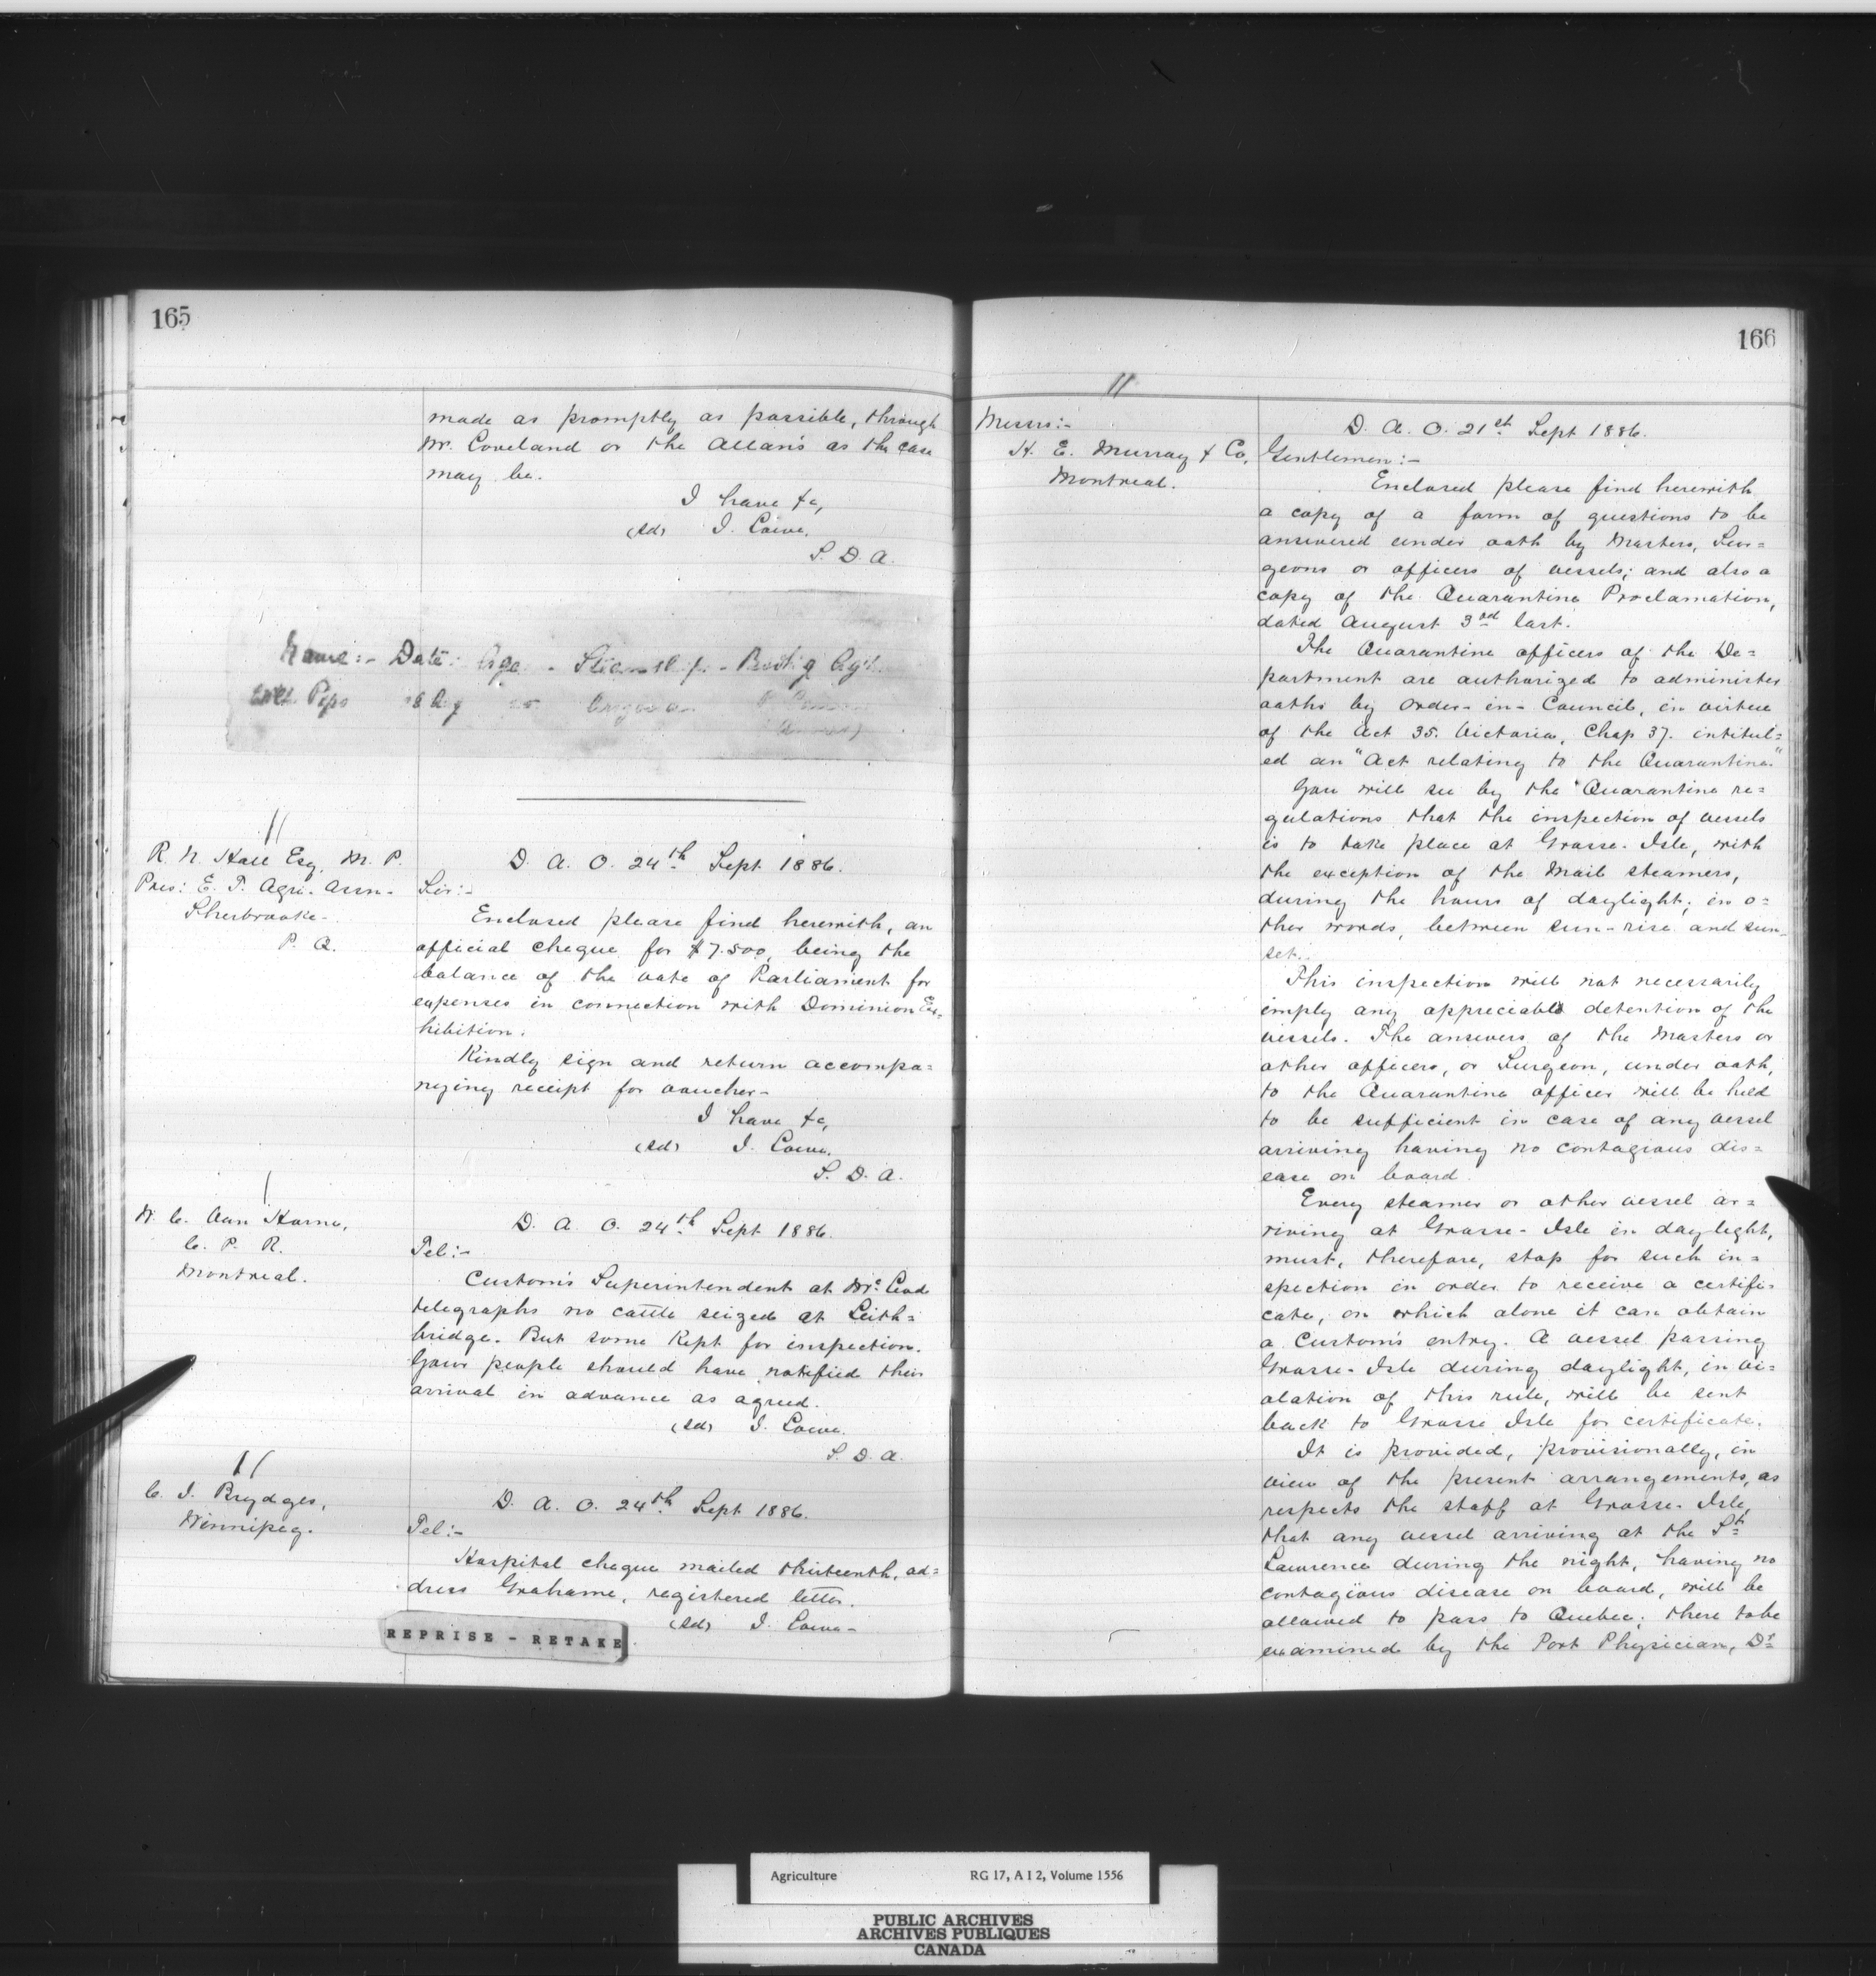 165
made as promptly as possible, through
Mr. Loveland or the Allan's as the case
may be.
I have &c,
(sd) J. Lowe.
S. D. A.
Name:- Date: Age - Steamship - Bookg Agt.
Pepo 28 Aug
11
R. N. Hall Esq. M. P.
Pres: E. T. Agri. Assn-
Sherbrooke-
P. Q.
D. A. O. 24th Sept 1886.
Sir:-
Enclosed please find herewith, an
official cheque for $7.500, being the
balance of the vote of Parliament for
expenses in connection with Dominion Ex-
hibition.
Kindly sign and return accompa=
nying receipt for voucher-
I have &c,
(sd) J. Lowe.
S. D. A.
1
W. C. Van Horne,
C. P. R.
Montreal.
D. A. O. 24th Sept 1886.
Tel:-
Custom's Superintendent at McLeod
telegraphs no cattle seized at Leith=
bridge. But some kept for inspection.
Your people should have notified their
arrival in advance as agreed.
(sd) J. Lowe.
S. D. A.
11
C. J. Brydges,
Winnipeg.
D. A. O. 24th Sept 1886.
Tel:-
Hospital cheque mailed thirteenth, ad=
dress Grahame, registered letter.
(sd) J. Lowe-
REPRISE - RETAKE
166
11
Messrs:-
H. E. Murray & Co,
Montreal.
D. A. O. 21st Sept 1886.
Gentlemen:-
Enclosed please find herewith
a copy of a form of questions to be
answered under oath by Masters, Sur=
geons or officers of vessels; and also a
copy of the Quarantine Proclamation,
dated August 3rd last.
The Quarantine officers of the De=
partment are authorized to administer
oaths by Order-in-Council, in virtue
of the Act 35. Victoria, Chap 37. intitul=
ed an "Act relating to the Quarantine."
You will see by the Quarantine re=
gulations that the inspection of vessels
is to take place at Grosse-Isle, with
the exception of the Mail steamers,
during the hours of daylight; in o=
ther words, between sun-rise and sun-
set.
This inspection will not necessarily
imply any appreciable detention of the
vessels. The answers of the Masters or
other officers, or Surgeon, under oath,
to the Quarantine officer will be held
to be sufficient in case of any vessel
arriving having no contagious dis=
ease on board.
Every steamer or other vessel ar=
riving at Grosse-Isle in daylight,
must, therefore, stop for such in=
spection in order to receive a certifi-
cate, on which alone it can obtain
a Custom's entry. A vessel passing
Grosse-Isle during daylight, in vi=
olation of this rule, will be sent
back to Grosse Isle for certificate.
It is provided, provisionally, in
view of the present arrangements, as
respects the staff at Grosse-Isle,
that any vessel arriving at the St.
Lawrence during the night, having no
contagious disease on board, will be
allowed to pass to Quebec; there to be
examined by the Port Physician, Dr
Agriculture RG 17, A I 2, Volume 1556
PUBLIC ARCHIVES
ARCHIVES PUBLIQUES
CANADA